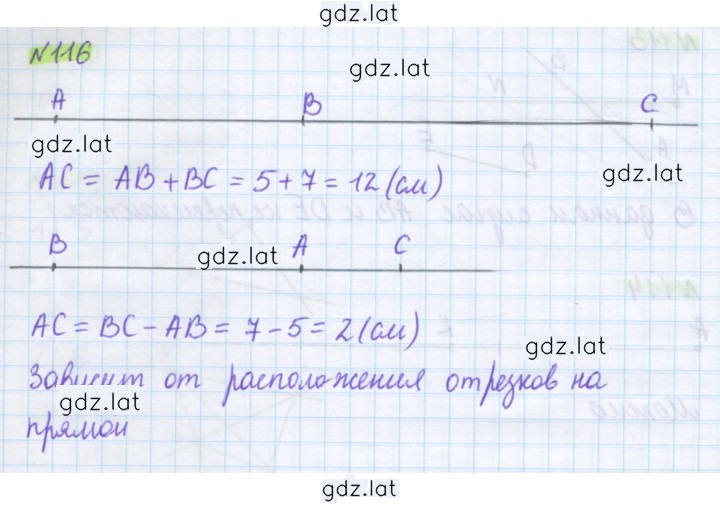 gdz.lat
№116
gdz.lat
A B C
gdz.lat
AC = AB + BC = 5 + 7 = 12 (см)
gdz.lat
B A C
gdz.lat
AC = BC - AB = 7 - 5 = 2 (см)
gdz.lat
Зависит от расположения отрезков на
gdz.lat
прямой
gdz.lat